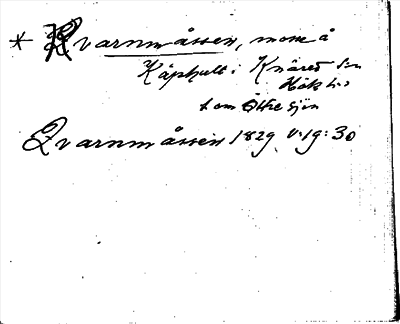 * Kvarnmåssen, mosse å
Käphult i Knäred sn
Höks hd
t om Östre sjön
Qvarnmåssen 1829 V:19:30